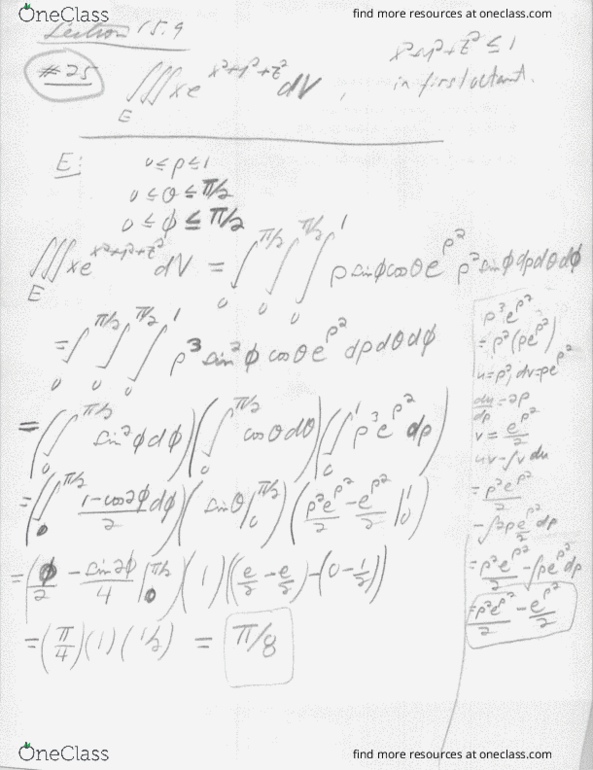 OneClass
find more resources at oneclass.com
Section 15.9
#25 ∭_E xe^{x²+y²+z²} dV, x²+y²+z² ≤ 1
in first octant.
E: 0 ≤ ρ ≤ 1
0 ≤ θ ≤ π/2
0 ≤ φ ≤ π/2
∭_E xe^{x²+y²+z²} dV = ∫_0^{π/2} ∫_0^{π/2} ∫_0^1 ρ sinφ cosθ e^{ρ²} ρ² sinφ dρ dθ dφ
= ∫_0^{π/2} ∫_0^{π/2} ∫_0^1 ρ³ sin²φ cosθ e^{ρ²} dρ dθ dφ
= (∫_0^{π/2} sin²φ dφ)(∫_0^{π/2} cosθ dθ)(∫_0^1 ρ³ e^{ρ²} dρ)
= (∫_0^{π/2} (1-cos2φ)/2 dφ)(sinθ |_0^{π/2})(ρ²e^{ρ²}/2 - e^{ρ²}/2 |_0^1)
= (φ/2 - sin2φ/4 |_0^{π/2})(1)((e/2 - e/2) - (0 - 1/2))
= (π/4)(1)(1/2) = π/8
ρ³e^{ρ²}
= ρ²(ρe^{ρ²})
u=ρ², dv=ρe^{ρ²}
du/dρ = 2ρ
v = e^{ρ²}/2
uv - ∫v du
= ρ²e^{ρ²}/2
- ∫2ρ e^{ρ²}/2 dρ
= ρ²e^{ρ²}/2 - ∫ρe^{ρ²} dρ
= ρ²e^{ρ²}/2 - e^{ρ²}/2
OneClass
find more resources at oneclass.com